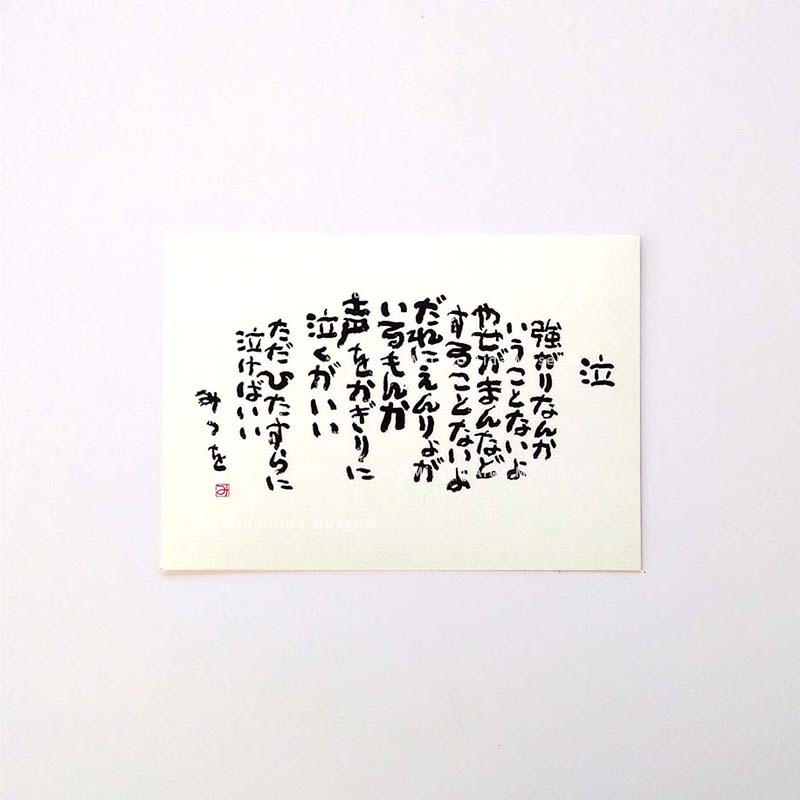 泣
強がりなんか
いうことないよ
やせがまんなど
することないよ
だれにえんりょが
いるもんか
声をかぎりに
泣くがいい
ただひたすらに
泣けばいい
みつを
み
Museum